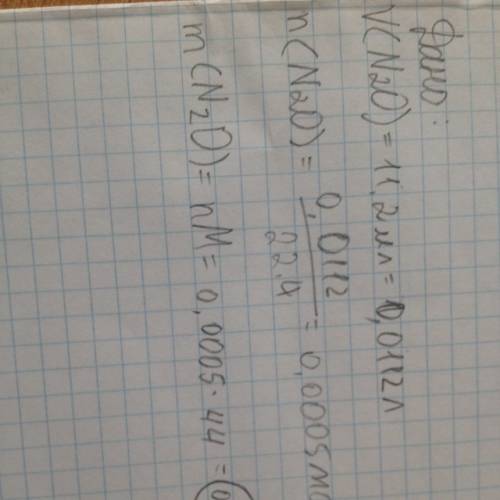 Дано:
V(N₂O) = 11,2 мл = 0,0112 л
n(N₂O) = 0,0112 / 22.4 = 0,0005 м
m(N₂O) = nM = 0,0005 · 44 = 0